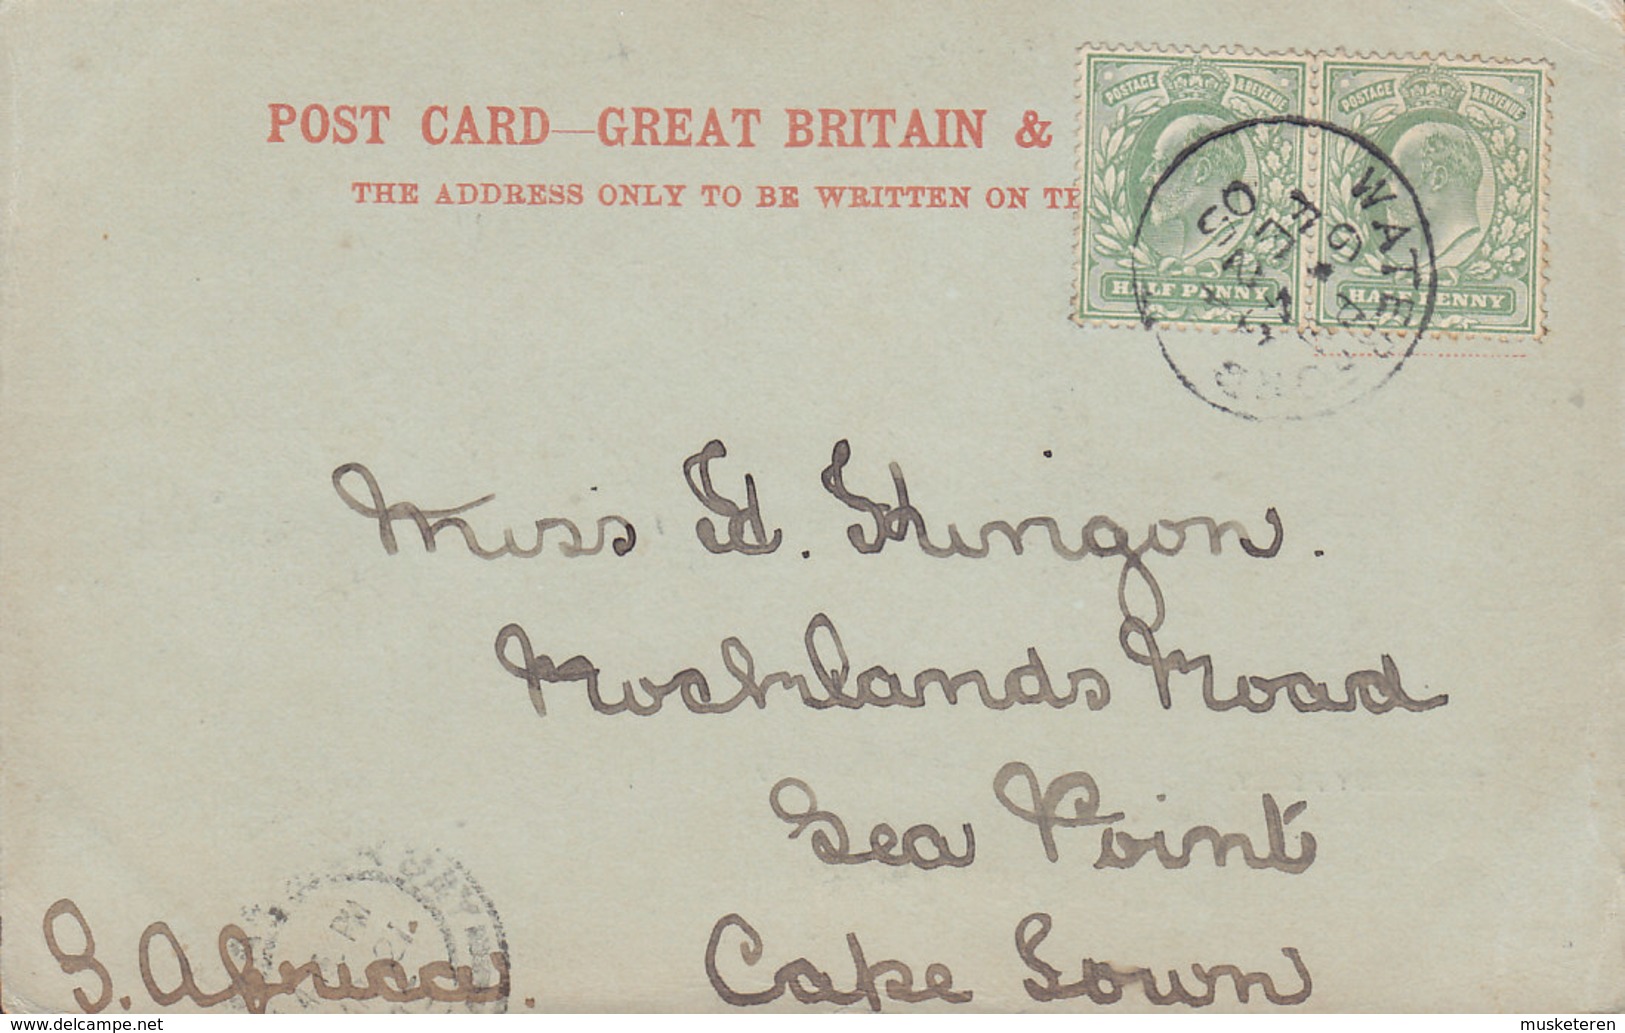 POST CARD—GREAT BRITAIN &
THE ADDRESS ONLY TO BE WRITTEN ON
POSTAGE & REVENUE
HALF PENNY
POSTAGE & REVENUE
HALF PENNY
Miss H. Hingon.
Rocklands Road
Sea Point
Cape Town
S. Africa.
PM
musketeren
delcampe.net